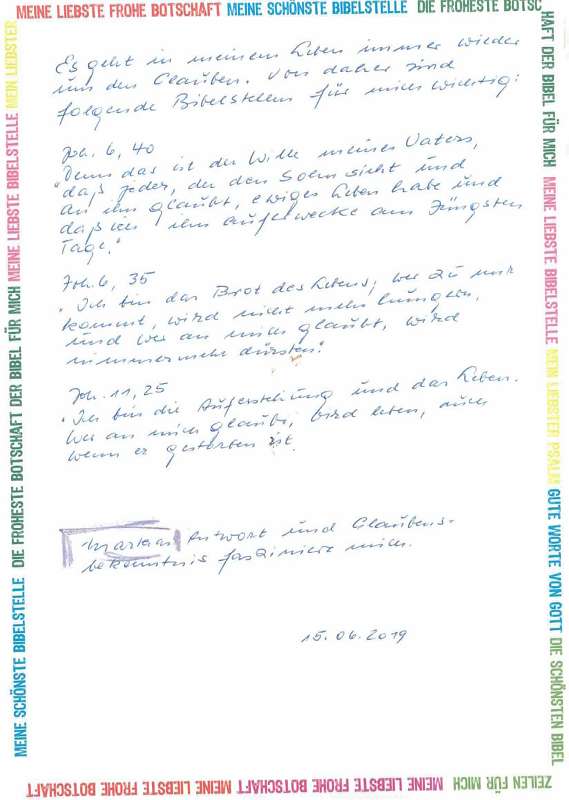 MEINE LIEBSTE FROHE BOTSCHAFT MEINE SCHÖNSTE BIBELSTELLE DIE FROHESTE BOTSC
HAFT DER BIBEL FÜR MICH MEINE LIEBSTE BIBELSTELLE MEIN LIEBSTER PSALM GUTE WORTE VON GOTT DIE SCHÖNSTEN BIBEL
ZEILEN FÜR MICH MEINE LIEBSTE FROHE BOTSCHAFT MEINE LIEBSTE FROHE BOTSCHAFT
MEINE SCHÖNSTE BIBELSTELLE DIE FROHESTE BOTSCHAFT DER BIBEL FÜR MICH MEINE LIEBSTE BIBELSTELLE MEIN LIEBSTER
Es geht in meinem Leben immer wieder
um den Glauben. Von daher sind
folgende Bibelstellen für mich wichtig:
Joh. 6, 40
"Denn das ist der Wille meines Vaters,
daß jeder, der den Sohn sieht und
an ihn glaubt, ewiges Leben habe und
daß ich ihn auferwecke am Jüngsten
Tage."
Joh. 6, 35
"Ich bin das Brot des Lebens; wer zu mir
kommt, wird nicht mehr hungern,
und wer an mich glaubt, wird
nimmermehr dürsten."
Joh. 11, 25
"Ich bin die Auferstehung und das Leben.
Wer an mich glaubt, wird leben, auch
wenn er gestorben ist.
Marthas Antwort und Glaubens-
bekenntnis fasziniert mich.
15.06.2019